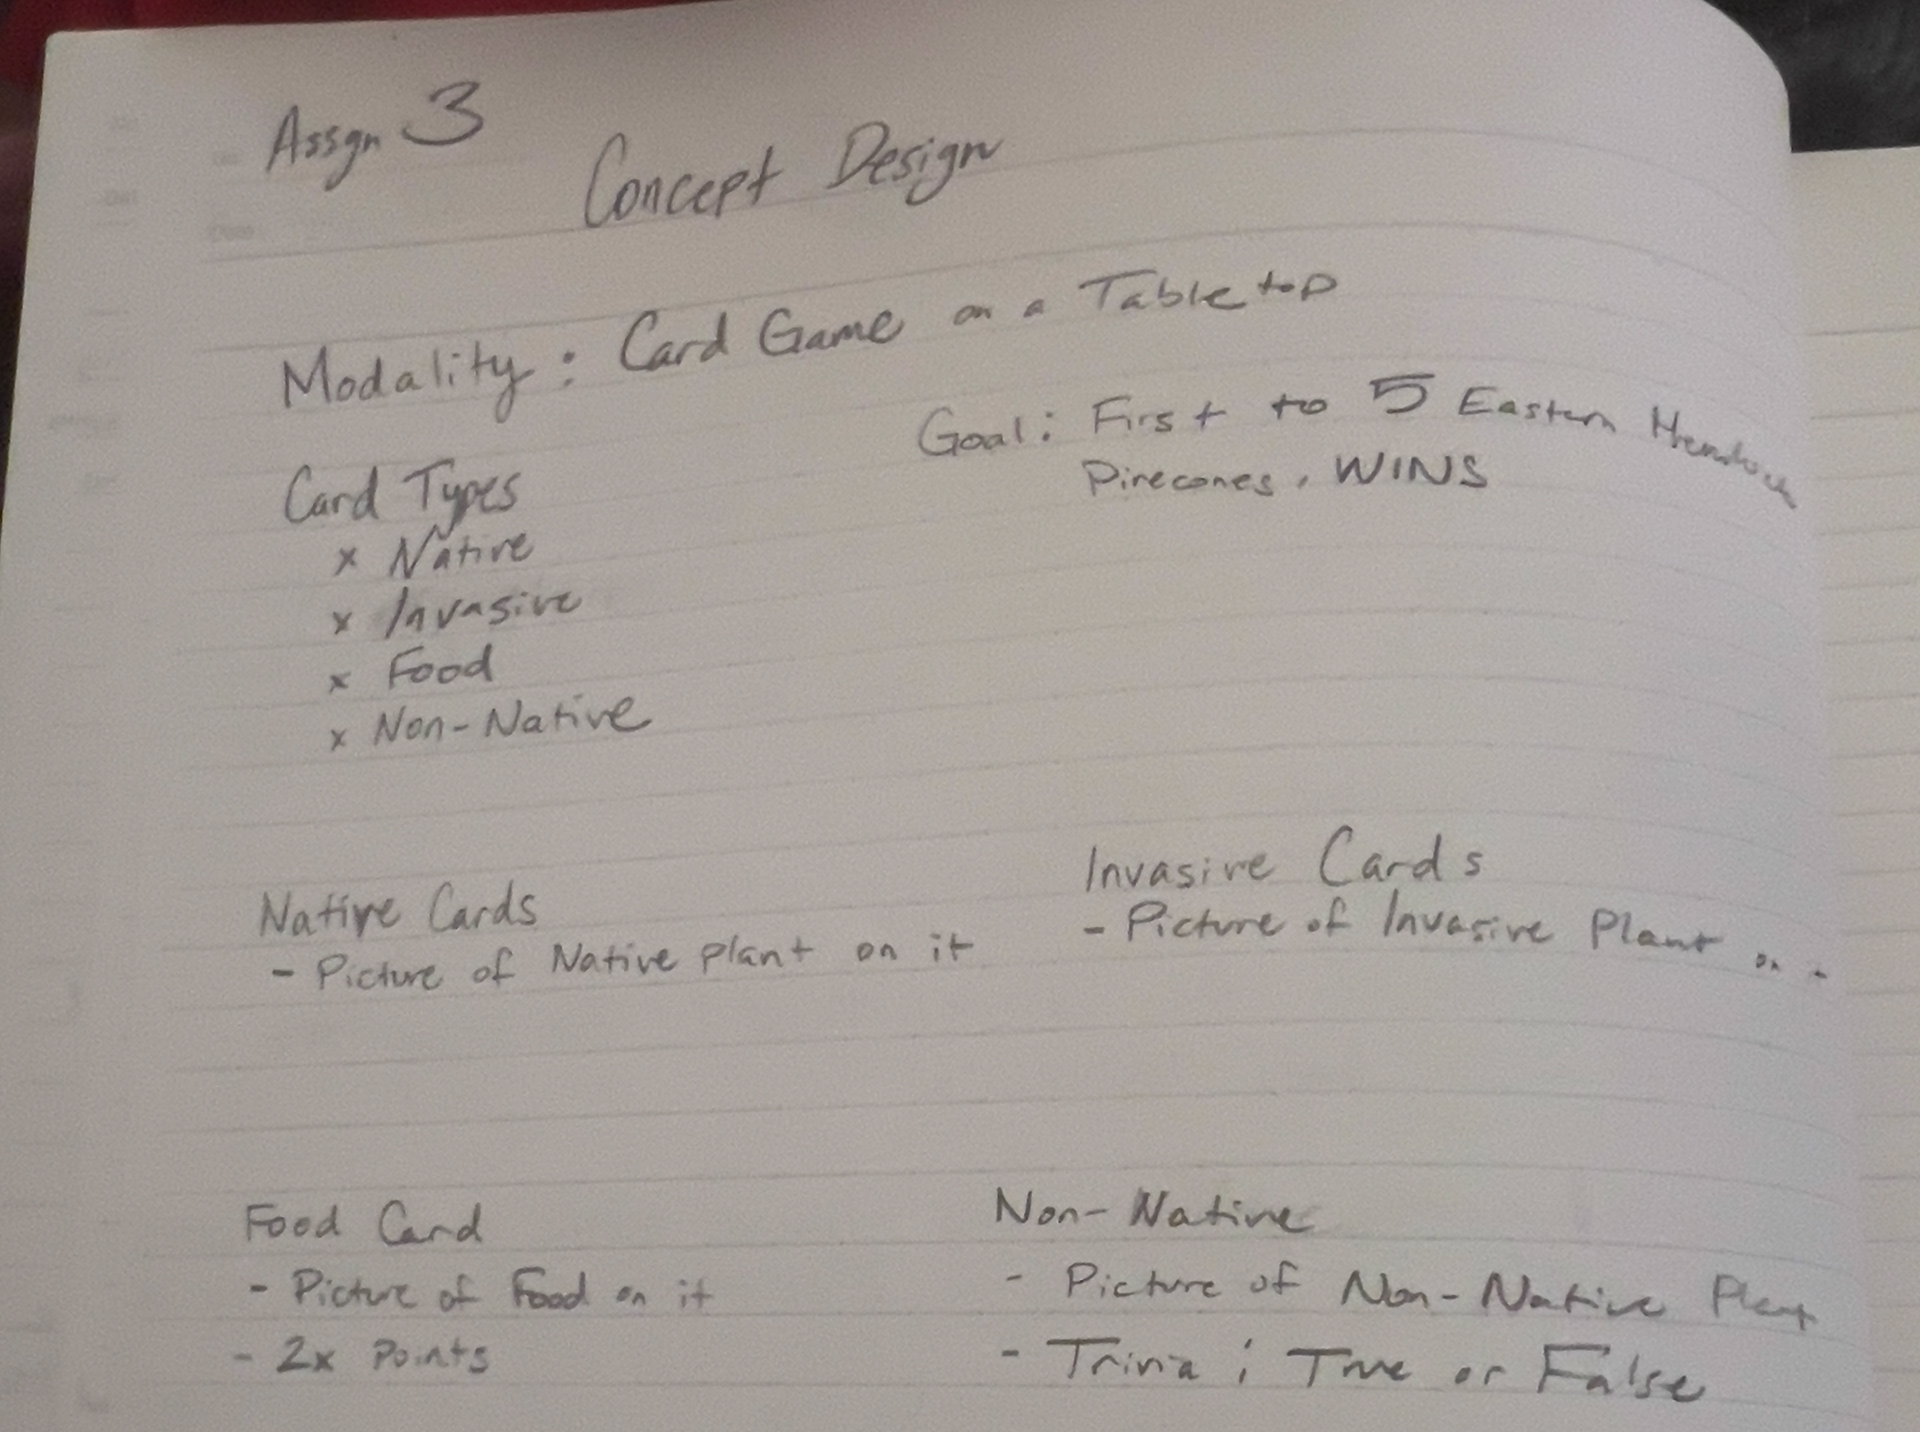 Assgn 3
Concept Design
Modality: Card Game on a Tabletop
Goal: First to 5 Eastern Hemlock
Pinecones, WINS
Card Types
x Native
x Invasive
x Food
x Non-Native
Native Cards
- Picture of Native Plant on it
Invasive Cards
- Picture of Invasive Plant on
Food Card
- Picture of Food on it
- 2x Points
Non-Native
- Picture of Non-Native Plant
- Trivia; True or False